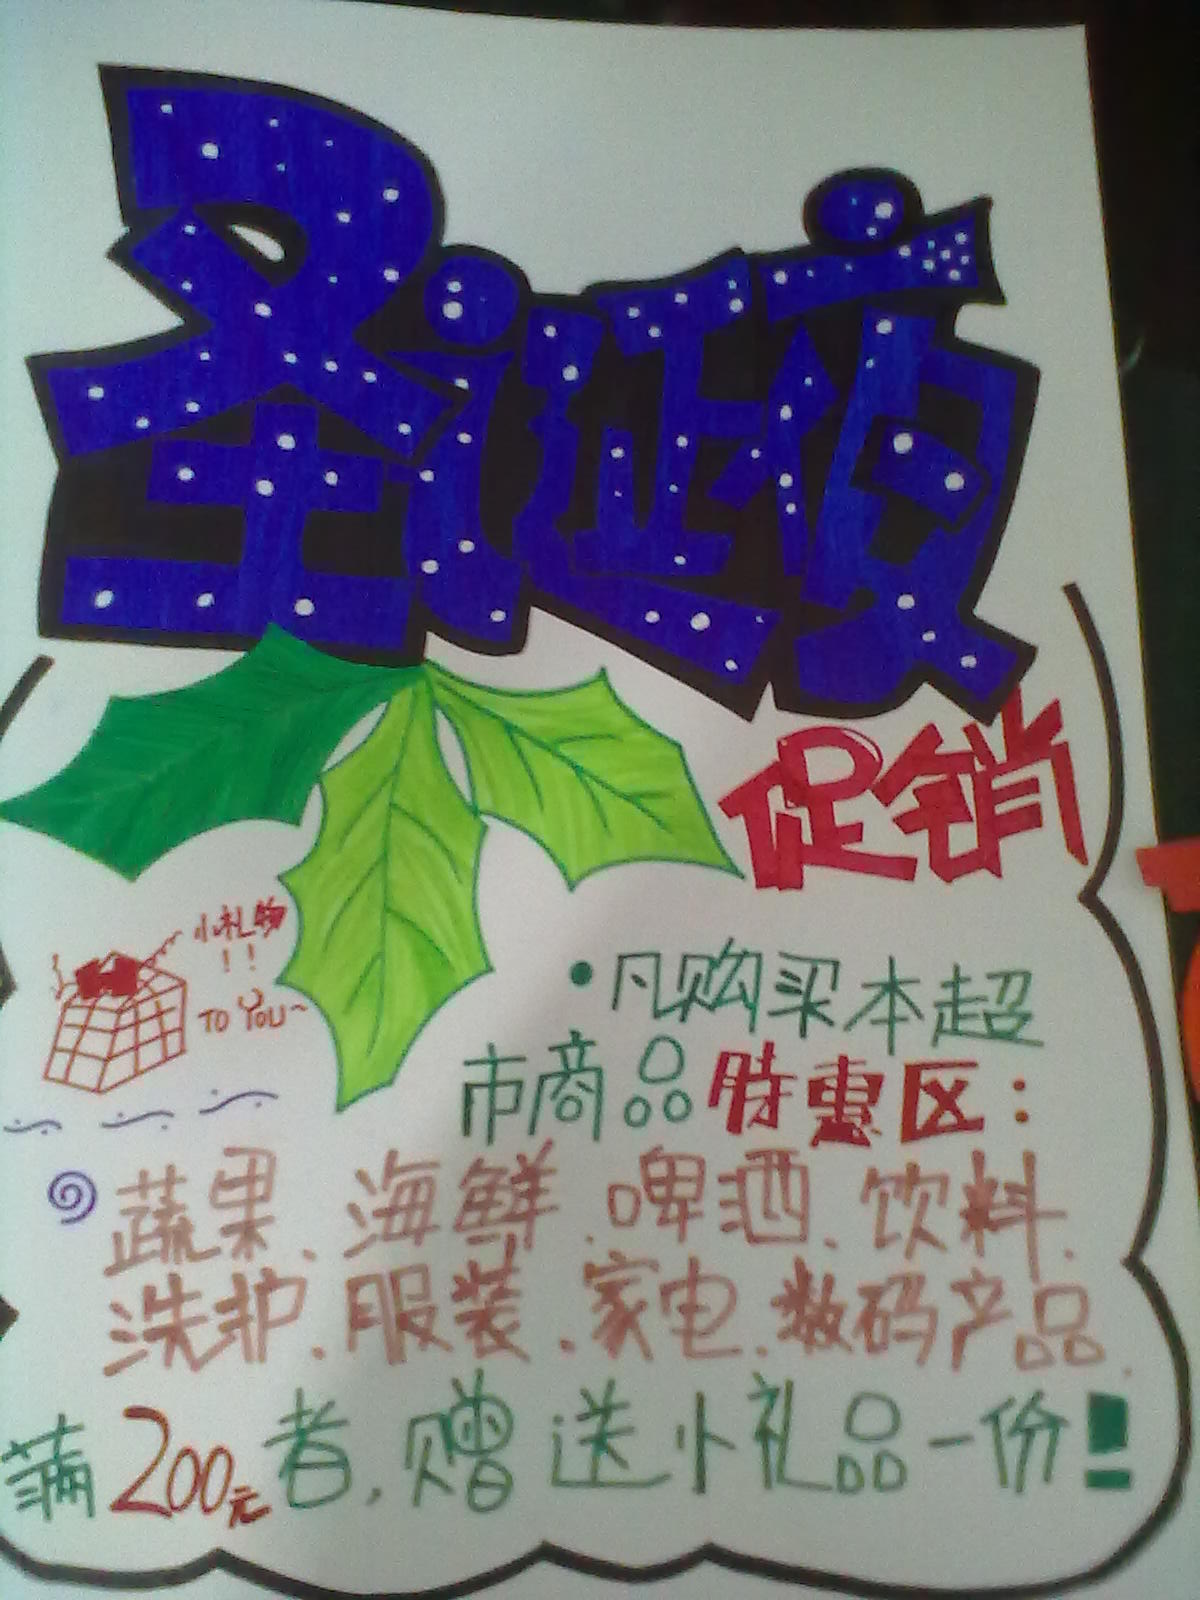 圣诞夜
促销
小礼物
!!
TO YOU~
•凡购买本超
市商品特惠区:
蔬果、海鲜、啤酒、饮料、
洗护、服装、家电、数码产品.
满200元者,赠送小礼品一份!